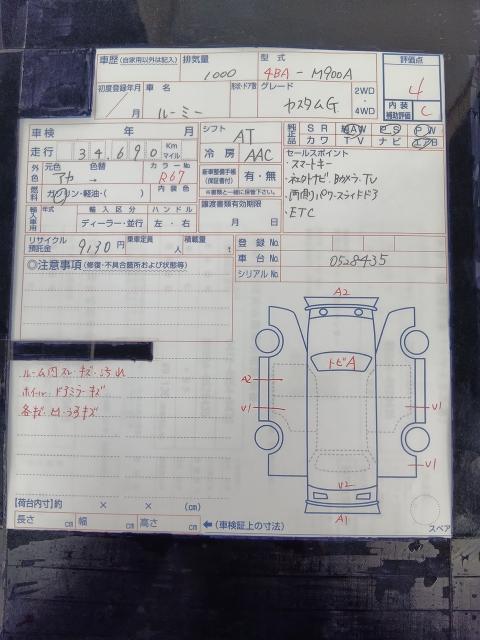 車歴(自家用以外は記入) 排気量 型式 評価点
1000 4BA - M900A 4
初度登録年月 車名 形状・ドア数 グレード 2WD・4WD 内装補助評価
/ 月 ルーミー カスタムG C
車検 年 月 シフト AT 純正品 SR AW PS PW
走行 34,690 Km マイル カワ TV ナビ
冷房 AAC セールスポイント
外色 元色 色替 カラーNo 新車整備手帳(保証書付) 有・無 ・スマートキー
アカ → R67 ※書類と一緒に保管下さい。 ・ネオトナビ.Bカメラ.TV
燃料 ガソリン・軽油・( ) 内装色 譲渡書類有効期限 ・両側パワースライドドア
輸入車用 年式 輸入区分 ハンドル 月 日 ・ETC
ディーラー・並行 左・右
リサイクル預託金 9130円 乗車定員 人 積載量 t 登録No.
車台No. 0528435
シリアルNo.
◎注意事項(修復・不具合箇所および状態等)
A2
トビA
A2
V1
V1
V1
V2
A1
ルーム内スレ・キズ・汚れ
ホイール・ドアミラーキズ
各キズ・凹・うすキズ
【荷台内寸】約 × × (cm)
長さ cm 幅 cm 高さ cm ←(車検証上の寸法) スペア